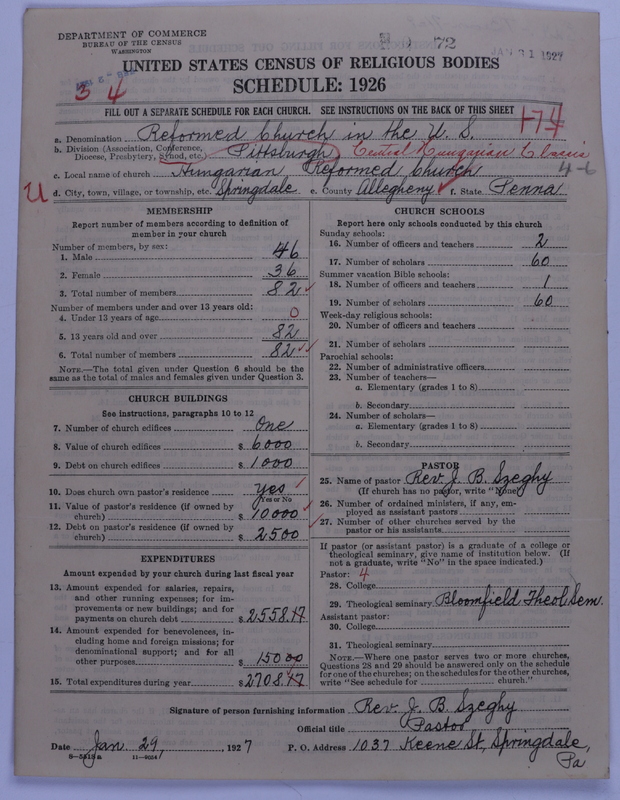 DEPARTMENT OF COMMERCE
BUREAU OF THE CENSUS
WASHINGTON
72
JAN 31 1927
UNITED STATES CENSUS OF RELIGIOUS BODIES
SCHEDULE: 1926
3 4
FILL OUT A SEPARATE SCHEDULE FOR EACH CHURCH. SEE INSTRUCTIONS ON THE BACK OF THIS SHEET
174
a. Denomination Reformed Church in the U. S.
b. Division (Association, Conference, Diocese, Presbytery, Synod, etc.) Pittsburgh Central Hungarian Classis
4-6
c. Local name of church Hungarian Reformed Church
U
d. City, town, village, or township, etc. Springdale e. County Allegheny f. State Penna
MEMBERSHIP
Report number of members according to definition of member in your church
Number of members, by sex:
1. Male 46
2. Female 36
3. Total number of members 82
Number of members under and over 13 years old:
4. Under 13 years of age 0
5. 13 years old and over 82
6. Total number of members 82
NOTE.—The total given under Question 6 should be the same as the total of males and females given under Question 3.
CHURCH BUILDINGS
See instructions, paragraphs 10 to 12
7. Number of church edifices One
8. Value of church edifices $ 6000
9. Debt on church edifices $ 1000
10. Does church own pastor's residence yes
Yes or No
11. Value of pastor's residence (if owned by church) $ 10000
12. Debt on pastor's residence (if owned by church) $ 2500
EXPENDITURES
Amount expended by your church during last fiscal year
13. Amount expended for salaries, repairs, and other running expenses; for improvements or new buildings; and for payments on church debt $ 2558.47
14. Amount expended for benevolences, including home and foreign missions; for denominational support; and for all other purposes 150 00
15. Total expenditures during year $ 2708.47
CHURCH SCHOOLS
Report here only schools conducted by this church
Sunday schools:
16. Number of officers and teachers 2
17. Number of scholars 60
Summer vacation Bible schools:
18. Number of officers and teachers 1
19. Number of scholars 60
Week-day religious schools:
20. Number of officers and teachers
21. Number of scholars
Parochial schools:
22. Number of administrative officers
23. Number of teachers—
a. Elementary (grades 1 to 8)
b. Secondary
24. Number of scholars—
a. Elementary (grades 1 to 8)
b. Secondary
PASTOR
25. Name of pastor Rev. J. B. Szeghy
(If church has no pastor, write "None")
26. Number of ordained ministers, if any, employed as assistant pastors
27. Number of other churches served by the pastor or his assistants
If pastor (or assistant pastor) is a graduate of a college or theological seminary, give name of institution below. (If not a graduate, write "No" in the space indicated.)
Pastor: 4
28. College
29. Theological seminary Bloomfield Theol. Sem.
Assistant pastor:
30. College
31. Theological seminary
NOTE.—Where one pastor serves two or more churches, Questions 28 and 29 should be answered only on the schedule for one of the churches; on the schedules for the other churches, write "See schedule for church."
Signature of person furnishing information Rev. J. B. Szeghy
Official title Pastor
Date Jan. 29, 1927 P. O. Address 1037 Keene St, Springdale, Pa